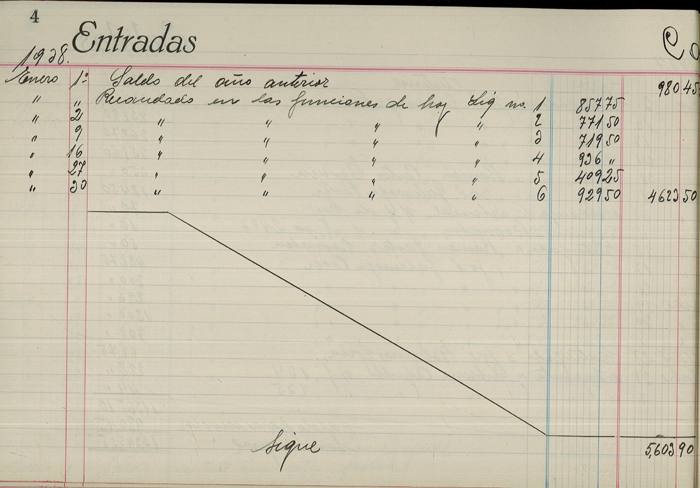 4
Entradas
Co
1938.
Enero 1º Saldo del año anterior 980 45
" " Recaudado en las funciones de hoy Liq no. 1 857 75
" 2 " " " " 2 771 50
" 9 " " " " 3 719 50
" 16 " " " " 4 936 "
" 27 " " " " 5 409 25
" 30 " " " " 6 929 50 4623 50
Sigue 5,603 90